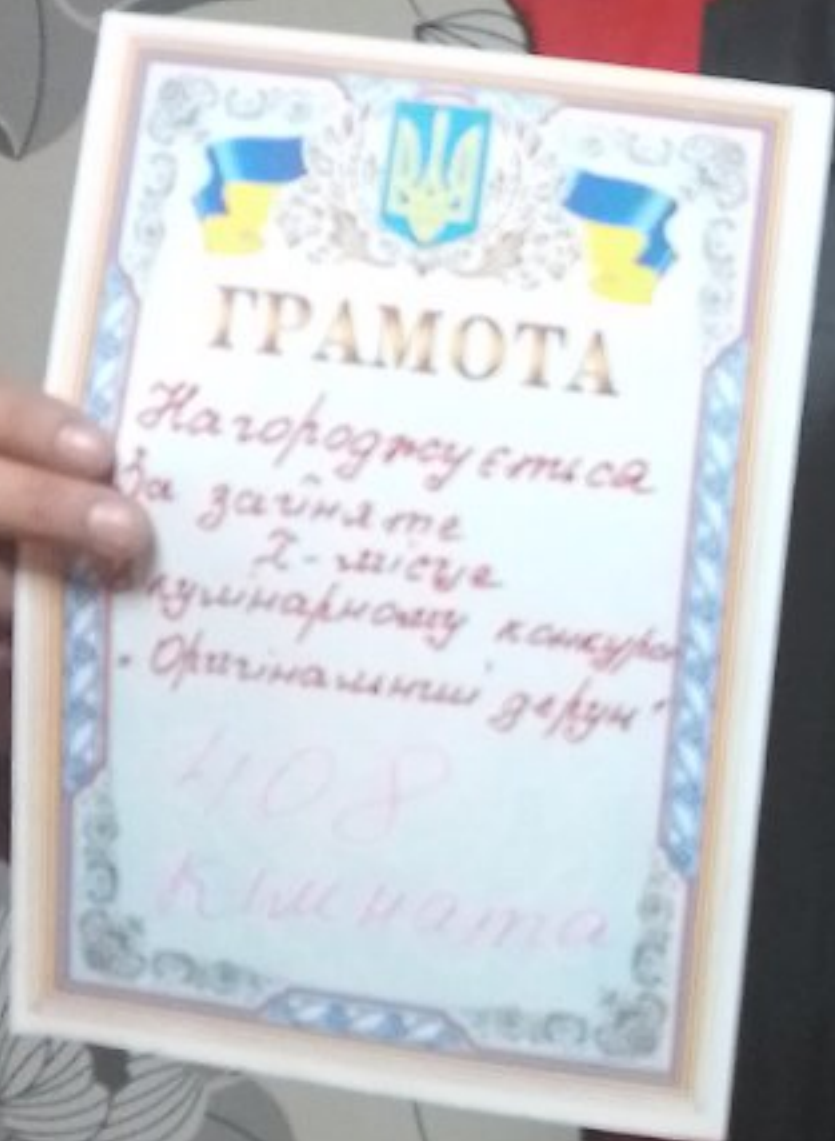 ГРАМОТА
Нагороджується
За зайняте
I-місце
кулінарному конкурсі
"Оригінальний дерун"
408
кімната